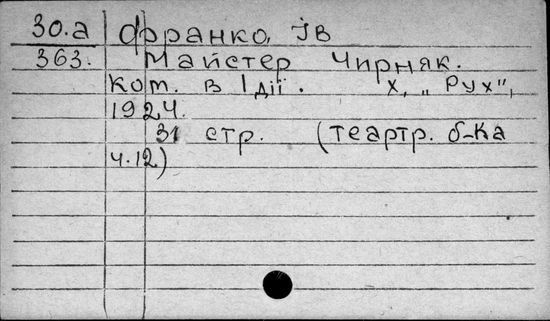 30.а Франко, Ів
363. Майстер Чирняк.
Ком. в 1 дії. Х, „Рух",
1924.
31 стр. (театр. б-ка
ч.12)